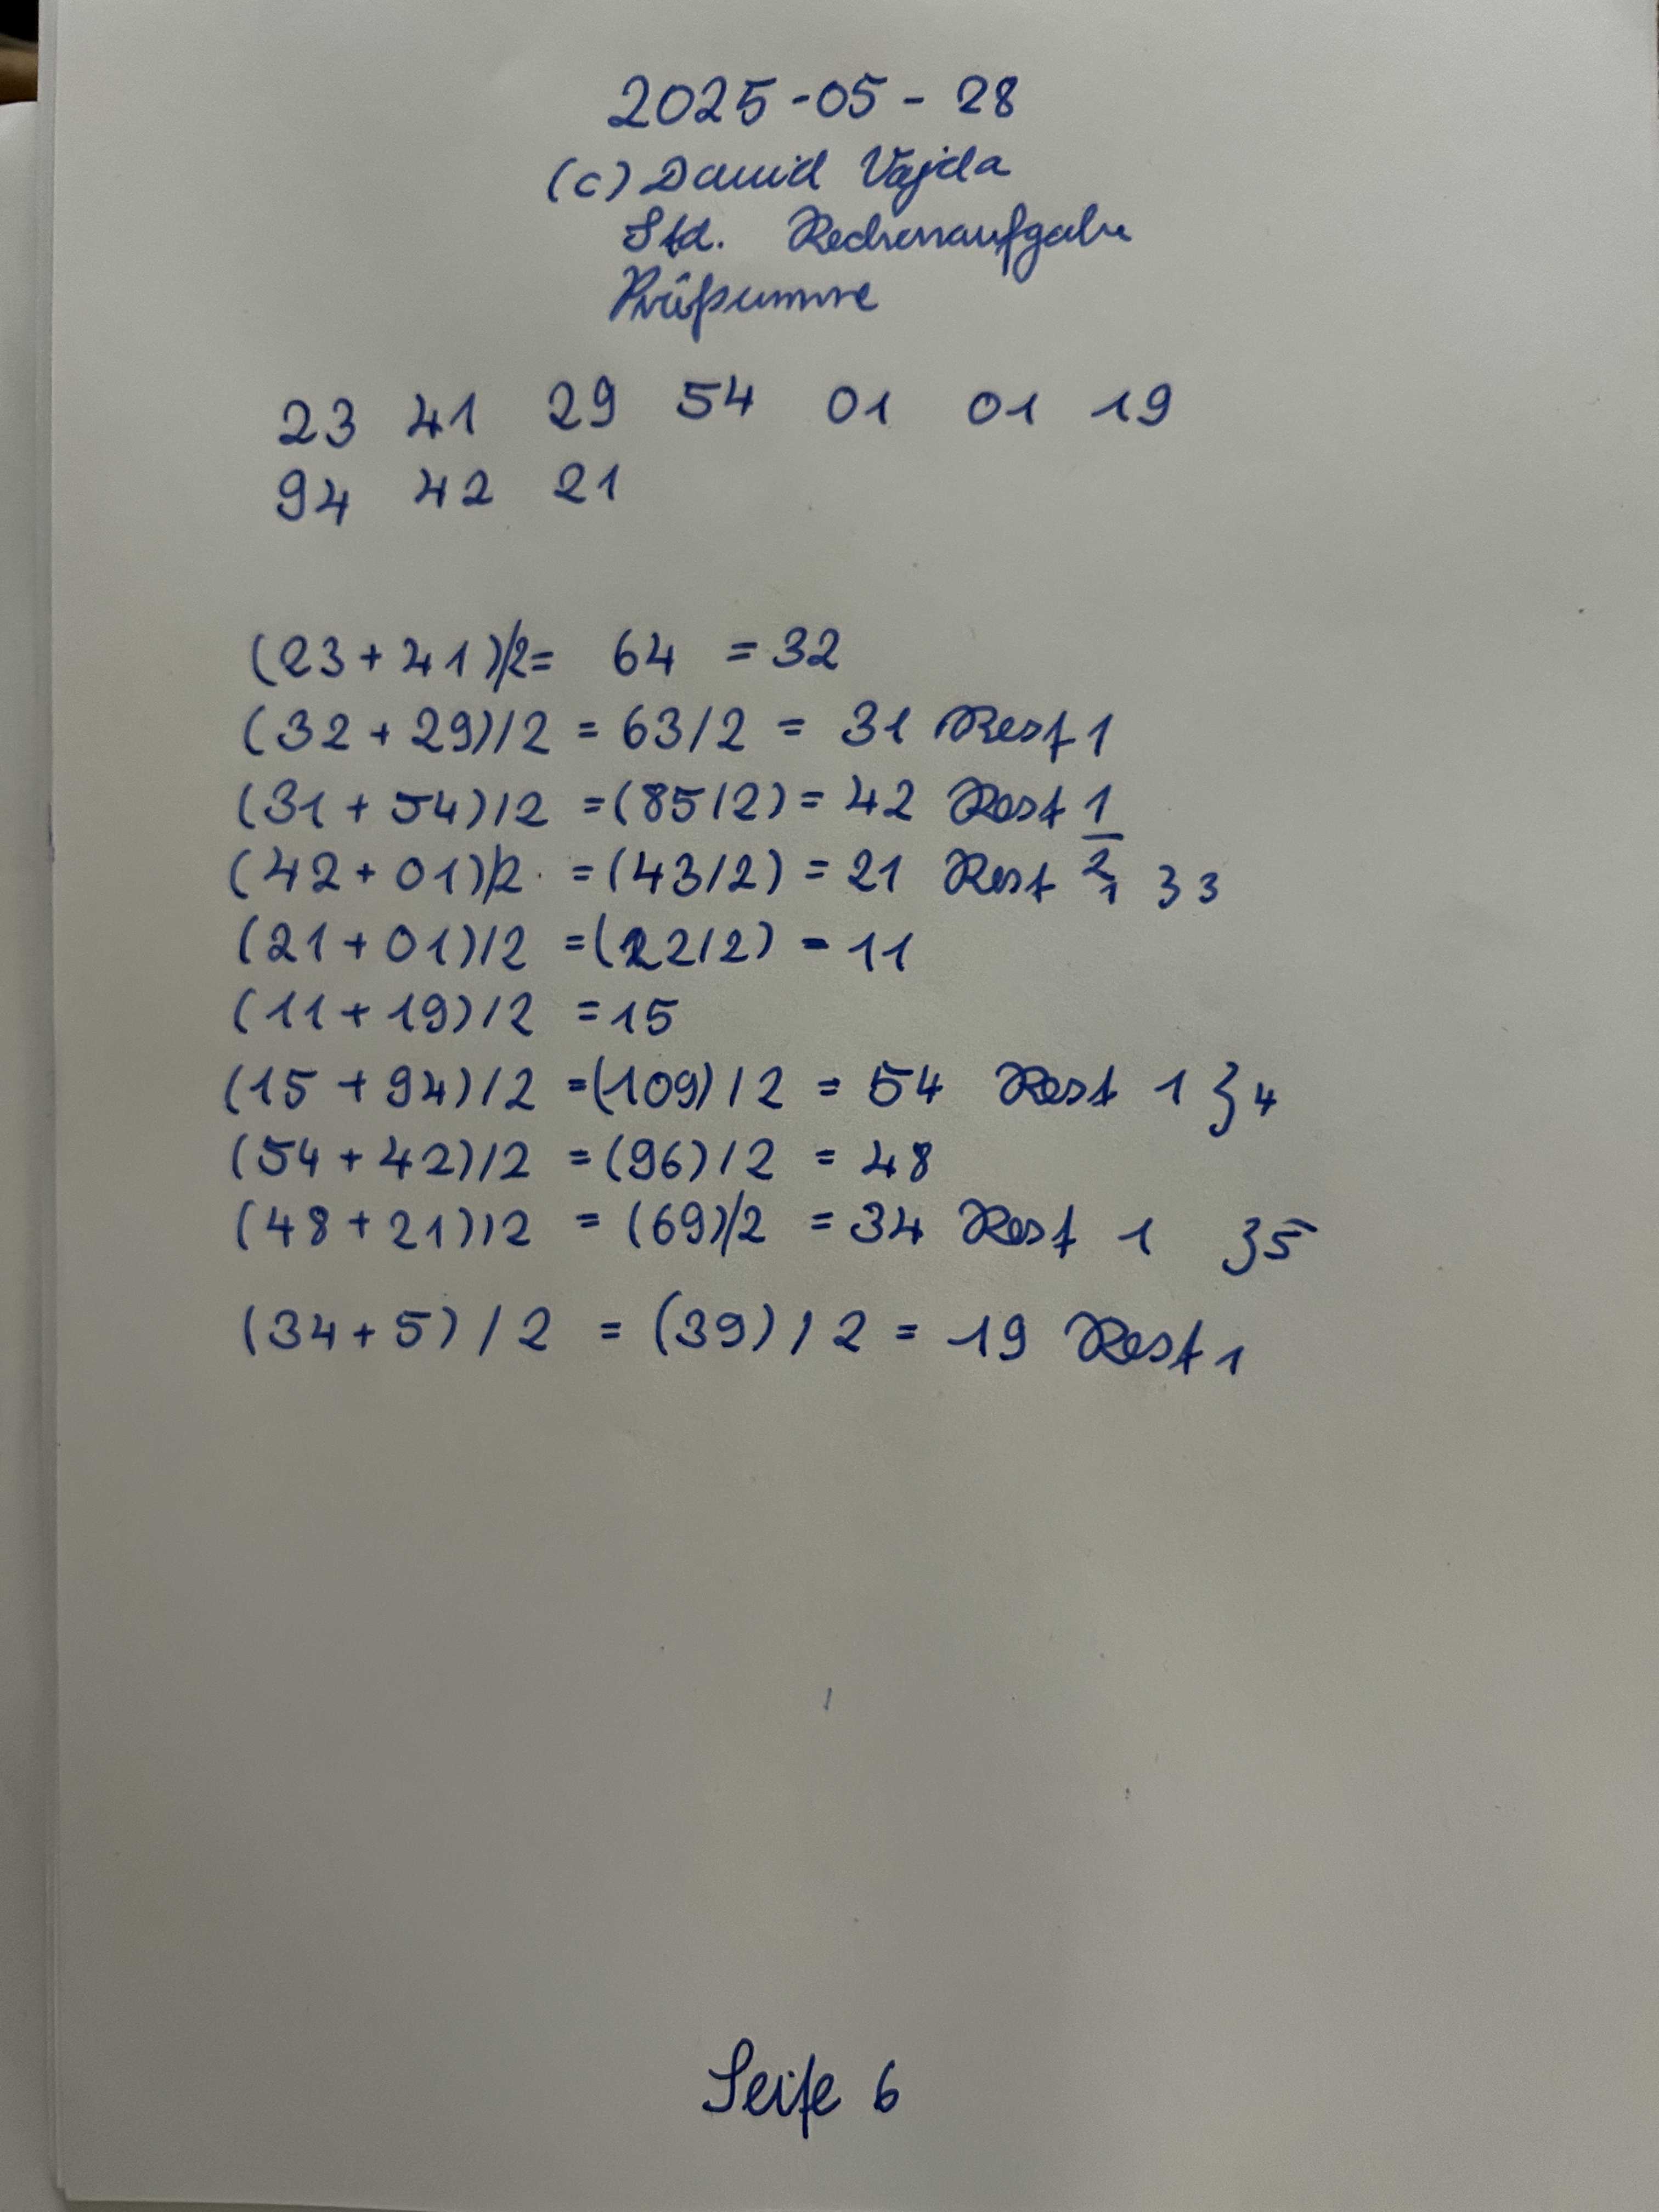 2025-05-28
(c) David Vajda
Std. Rechenaufgabe
Prüfsumme
23 41 29 54 01 01 19
94 42 21
(23+41)/2= 64 = 32
(32+29)/2 = 63/2 = 31 Rest 1
(31+54)/2 =(85/2)= 42 Rest 1
(42+01)/2 =(43/2)= 21 Rest 2 1 } 3
(21+01)/2 =(22/2) = 11
(11+19)/2 =15
(15+94)/2 =(109)/2 = 54 Rest 1 } 4
(54+42)/2 =(96)/2 = 48
(48+21)/2 = (69)/2 = 34 Rest 1 } 5
(34+5)/2 = (39)/2 = 19 Rest 1
Seite 6